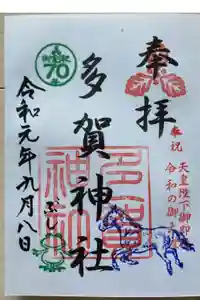 奉拝
奉祝
天皇陛下御即位
令和の御
多賀神社
70
令和元年九月八日